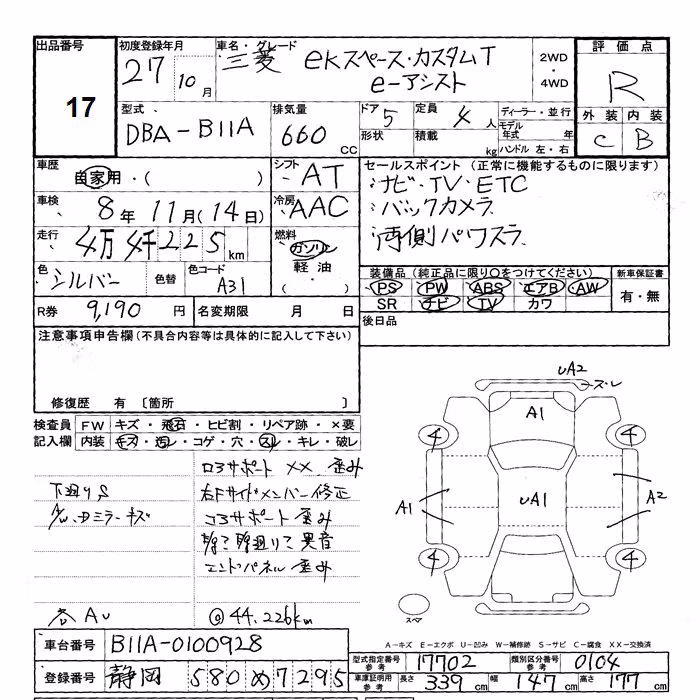 出品番号
17
初度登録年月
27 10月
車名・グレード
三菱 eKスペース・カスタムT
e-アシスト
2WD
・
4WD
評価点
R
外装 内装
C B
型式
DBA-B11A
排気量
660
CC
ドア 5
形状
定員 4 人
積載 kg
ディーラー・並行
モデル年式 年
ハンドル 左・右
車歴
自家用・( )
シフト AT
セールスポイント(正常に機能するものに限ります)
ナビ・TV・ETC
バックカメラ
両側パワスラ
車検
8年 11月(14日)
冷房 AAC
走行
4万4千225km
燃料
ガソリン
軽油・
( )
色
シルバー
色替
色コード
A31
装備品(純正品に限り○をつけてください)
PS PW ABS エアB AW
SR ナビ TV カワ
新車保証書
有・無
R券 9,190 円
名変期限 月 日
後日品
注意事項申告欄(不具合内容等は具体的に記入して下さい)
修復歴 有 〔箇所 〕
検査員記入欄
FW キズ・飛石・ヒビ割・リペア跡・×要
内装 キズ・汚レ・コゲ・穴・スレ・キレ・破レ
ロアサポート XX 歪み
下廻りS
右Fサイドメンバー修正
A/W、Dミラーキズ
コアサポート 歪み
異音
エンドパネル 歪み
各AU
@44,226km
UA2
スレ
A1
4
4
A1
UA1
A2
4
4
スペア
A-キズ E-エクボ U-凹み W-補修跡 S-サビ C-腐食 XX-交換済
車台番号 B11A-0100928
登録番号 静岡 580 め 7295
型式指定番号 参考 17702
類別区分番号 参考 0104
車庫証明用 参考 長さ 339 cm 幅 147 cm 高さ 177 cm